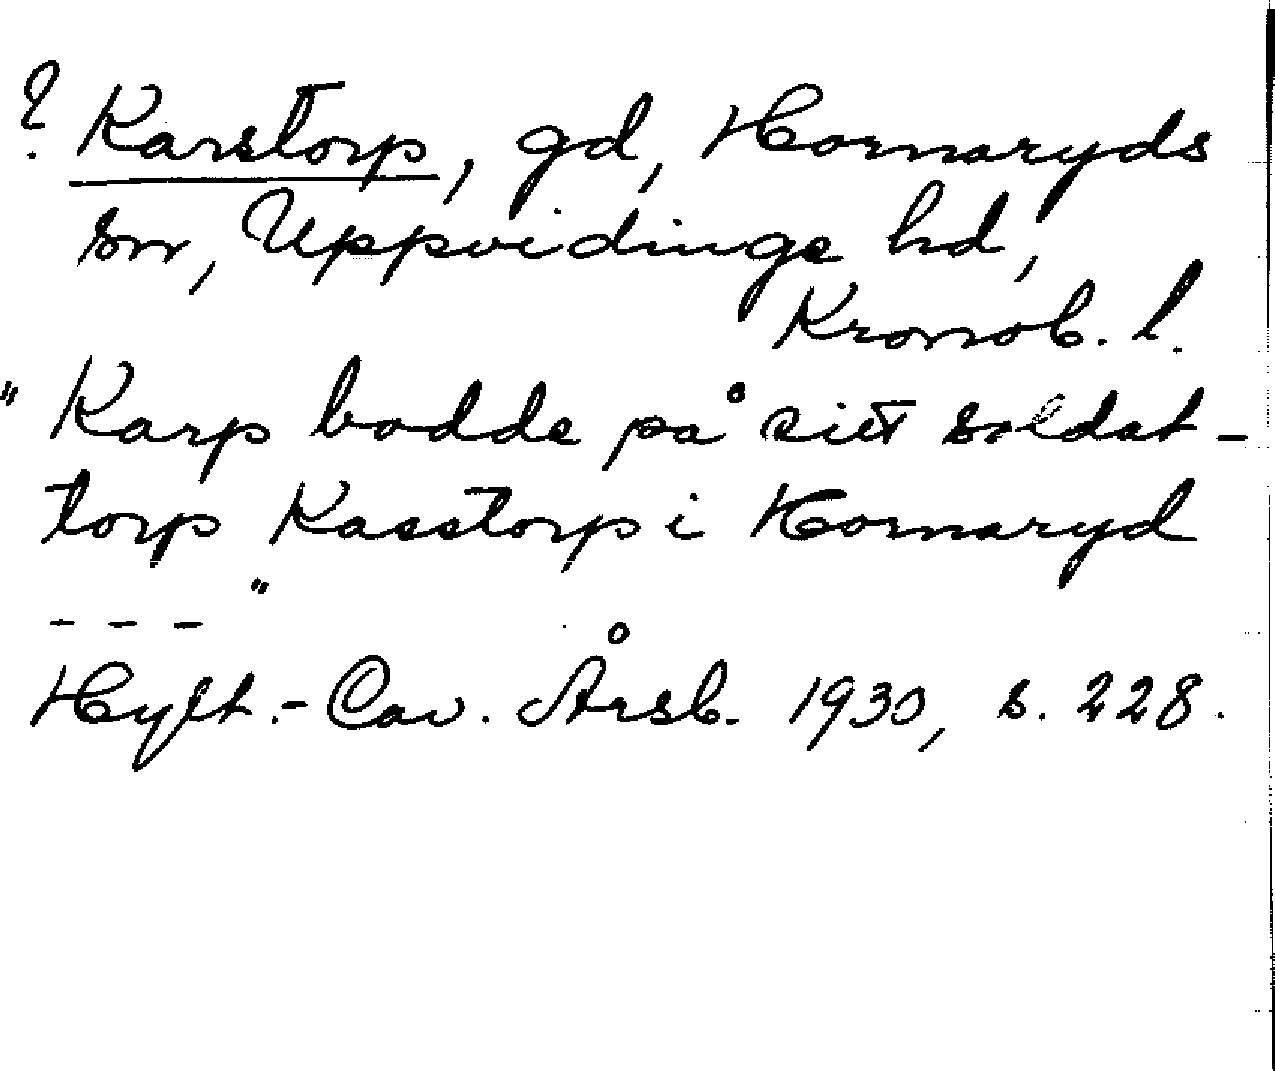 ? Karstorp, gd, Hornaryds
sn, Uppvidinge hd,
Kronob. l.
" Karp bodde på sitt soldat-
torp Kasstorp i Hornaryd
- - - "
Hylt.-Cav. Årsb. 1930, s. 228.